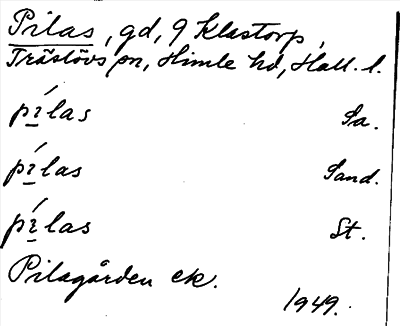 Pilas, gd, 9 Klastorp,
Träslövs sn, Himle hd, Hall. l.
pí̱las Sa.
pí̱las Sand.
pí̱las St.
Pilagården ek.
1949.